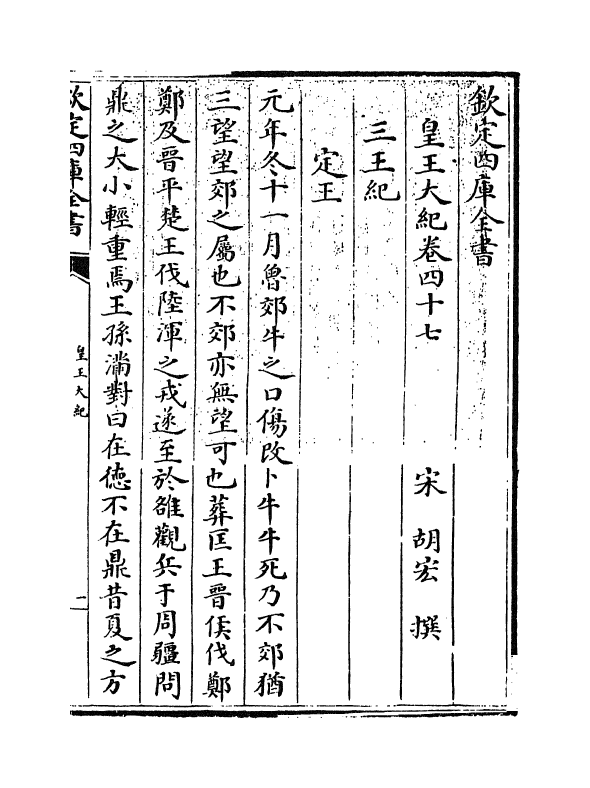 欽定四庫全書
皇王大紀卷四十七
宋 胡宏 撰
三王紀
定王
元年冬十一月魯郊牛之口傷改卜牛牛死乃不郊猶
三望望郊之屬也不郊亦無望可也葬匡王晉侯伐鄭
鄭及晉平楚王伐陸渾之戎遂至於雒觀兵于周疆問
鼎之大小輕重焉王孫滿對曰在德不在鼎昔夏之方
欽定四庫全書
皇王大紀
二